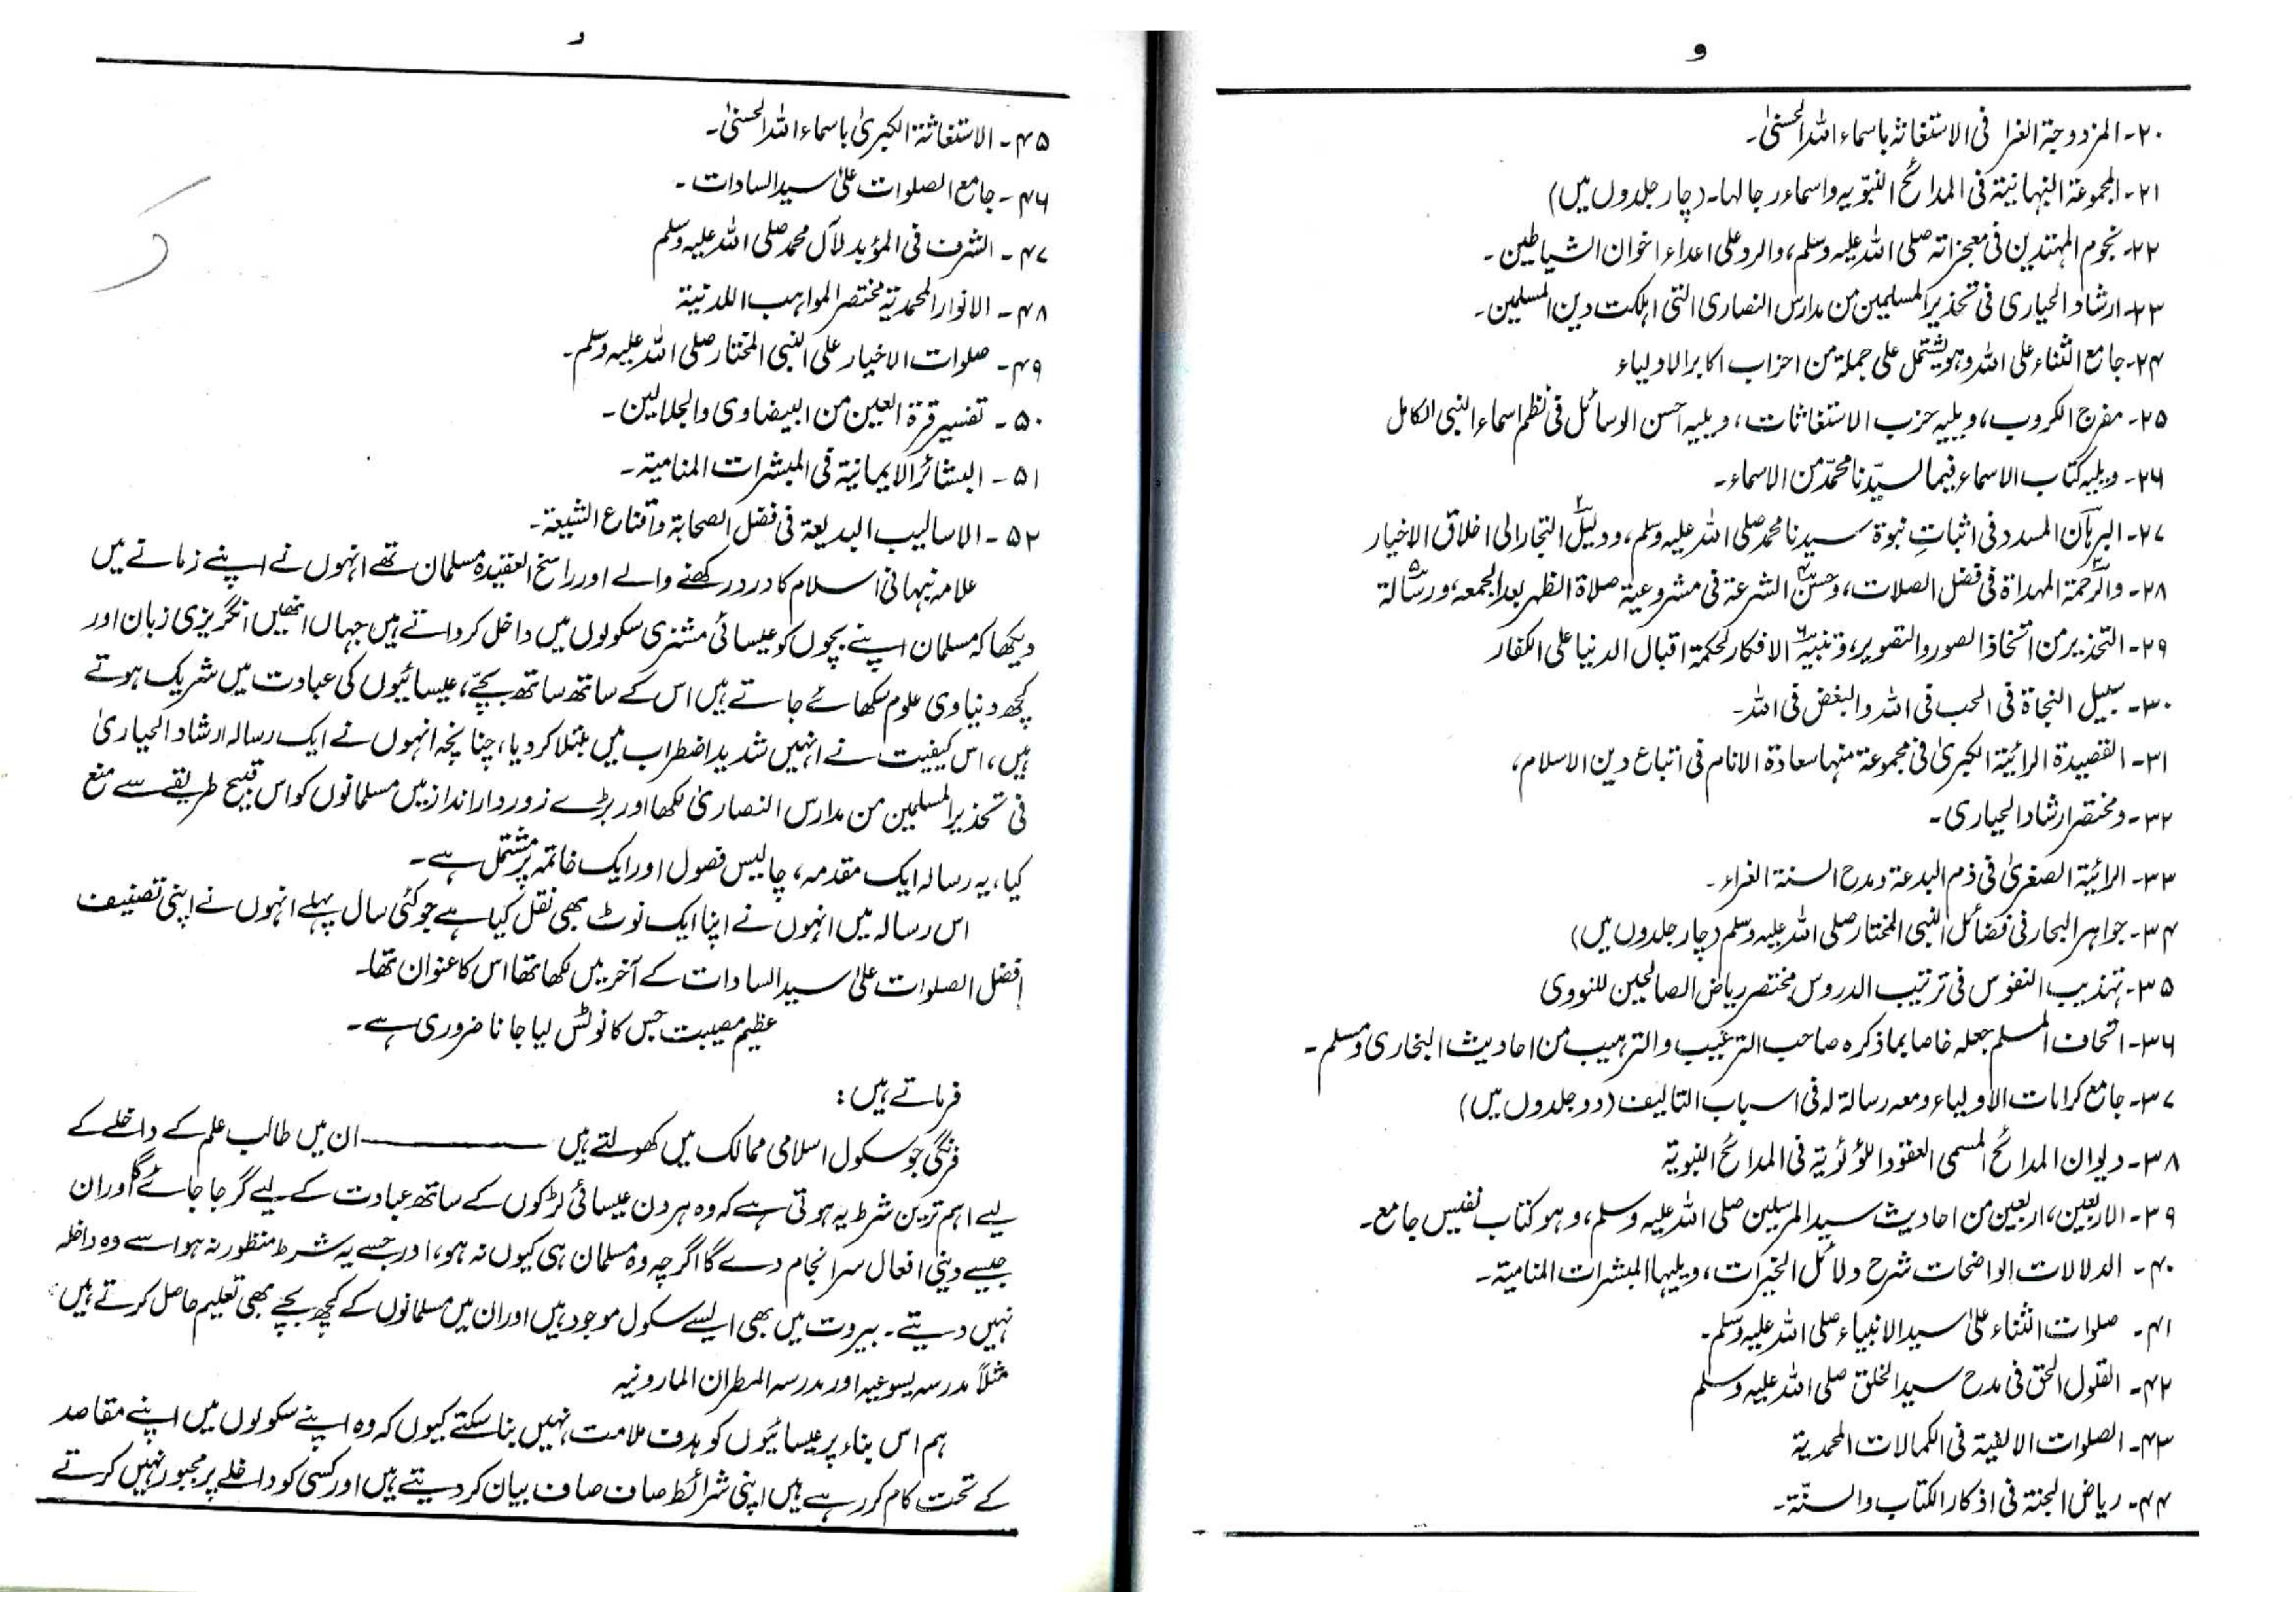 و
۲۰۔ المزدوجۃ الغرا فی الاستغاثہ باسماء اللہ الحسنیٰ۔
۲۱۔ المجموعۃ النبہانیۃ فی المدائح النبّویہ واسماء رجالہا۔ (چار جلدوں میں)
۲۲۔ نجوم المہتدین فی معجزاتہ صلی اللہ علیہ وسلم، والرد علی اعداء اخوان الشیاطین۔
۲۳۔ ارشاد الحیاری فی تحذیر المسلمین من مدارس النصاری التی اہلکت دین المسلمین۔
۲۴۔ جامع الثناء علی اللہ وہو یشتمل علی جملۃ من احزاب اکابر الاولیاء
۲۵۔ مفرج الکروب، ویلیہ حزب الاستغاثات، ویلیہ احسن الوسائل فی نظم اسماء النبی الکامل
۲۶۔ ویلیہ کتاب الاسماء فیما لسیّدنا محمّد من الاسماء۔
۲۷۔ البرہان المسدد فی اثباتِ نبوۃ سیدنا محمد صلی اللہ علیہ وسلم، ۲ ودلیل التجار الی اخلاق الاخیار
۲۸۔ ۳ والرحمۃ المہداۃ فی فضل الصلات، ۴ وحسن الشرعۃ فی مشروعیۃ صلاۃ الظہر بعد الجمعہ، ۵ ورسالۃ
۲۹۔ التحذیر من اتخاذ الصور والتصویر، ۶ وتنبیہ الافکار لحکمۃ اقبال الدنیا علی الکفار
۳۰۔ سبیل النجاۃ فی الحب فی اللہ والبغض فی اللہ۔
۳۱۔ القصیدۃ الرائیۃ الکبریٰ فی مجموعۃ منہا سعادۃ الانام فی اتباع دین الاسلام،
۳۲۔ ومختصر ارشاد الحیاری۔
۳۳۔ الرائیۃ الصغریٰ فی ذم البدعۃ ومدح السنۃ الغراء۔
۳۴۔ جواہر البحار فی فضائل النبی المختار صلی اللہ علیہ وسلم (چار جلدوں میں)
۳۵۔ تہذیب النفوس فی ترتیب الدروس مختصر ریاض الصالحین للنووی
۳۶۔ اتحاف المسلم جعلہ خاصا بما ذکرہ صاحب الترغیب والترہیب من احادیث البخاری ومسلم۔
۳۷۔ جامع کرامات الاولیاء ومعہ رسالۃ لہ فی اسباب التالیف (دو جلدوں میں)
۳۸۔ دیوان المدائح المسمی العقود اللؤلؤیۃ فی المدائح النبویۃ
۳۹۔ الاربعین، اربعین من احادیث سید المرسلین صلی اللہ علیہ وسلم، وہو کتاب نفیس جامع۔
۴۰۔ الدلالات الواضحات شرح دلائل الخیرات، ویلیہا المبشرات المنامیۃ۔
۴۱۔ صلوات الثناء علیٰ سید الانبیاء صلی اللہ علیہ وسلم۔
۴۲۔ القول الحق فی مدح سید الخلق صلی اللہ علیہ وسلم
۴۳۔ الصلوات الالفیۃ فی الکمالات المحمدیۃ
۴۴۔ ریاض الجنۃ فی اذکار الکتاب والسنّۃ۔
ر
۴۵۔ الاستغاثۃ الکبریٰ باسماء اللہ الحسنیٰ۔
۴۶۔ جامع الصلوات علیٰ سید السادات۔
۴۷۔ الشرف فی المؤبد لآل محمد صلی اللہ علیہ وسلم
۴۸۔ الانوار المحمدیۃ مختصر المواہب اللدنیۃ
۴۹۔ صلوات الاخیار علی النبی المختار صلی اللہ علیہ وسلم۔
۵۰۔ تفسیر قرۃ العین من البیضاوی والجلالین۔
۵۱۔ البشائر الایمانیۃ فی المبشرات المنامیۃ۔
۵۲۔ الاسالیب البدیعۃ فی فضل الصحابۃ واقناع الشیعۃ۔
علامہ نبہانی اسلام کا درد رکھنے والے اور راسخ العقیدہ مسلمان تھے انہوں نے اپنے زمانے میں
دیکھا کہ مسلمان اپنے بچوں کو عیسائی مشنری سکولوں میں داخل کرواتے ہیں جہاں انھیں انگریزی زبان اور
کچھ دنیاوی علوم سکھائے جاتے ہیں اس کے ساتھ ساتھ بچّے، عیسائیوں کی عبادت میں شریک ہوتے
ہیں، اس کیفیت نے انہیں شدید اضطراب میں مبتلا کر دیا، چنانچہ انہوں نے ایک رسالہ ارشاد الحیاریٰ
فی تحذیر المسلمین من مدارس النصاریٰ لکھا اور بڑے زور دار انداز میں مسلمانوں کو اس قبیح طریقے سے منع
کیا، یہ رسالہ ایک مقدمہ، چالیس فصول اور ایک خاتمہ پر مشتمل ہے۔
اس رسالہ میں انہوں نے اپنا ایک نوٹ بھی نقل کیا ہے جو کئی سال پہلے انہوں نے اپنی تصنیف
افضل الصلوات علیٰ سید السادات کے آخر میں لکھا تھا اس کا عنوان تھا۔
عظیم مصیبت جس کا نوٹس لیا جانا ضروری ہے۔
فرماتے ہیں:
فرنگی جو سکول اسلامی ممالک میں کھولتے ہیں ــــــــــــــ ان میں طالب علم کے داخلے کے
لیے اہم ترین شرط یہ ہوتی ہے کہ وہ ہر دن عیسائی لڑکوں کے ساتھ عبادت کے لیے گرجا جائے گا اور ان
جیسے دینی افعال سرانجام دے گا اگرچہ وہ مسلمان ہی کیوں نہ ہو، اور جسے یہ شرط منظور نہ ہو اسے وہ داخلہ
نہیں دیتے۔ بیروت میں بھی ایسے سکول موجود ہیں اور ان میں مسلمانوں کے کچھ بچے بھی تعلیم حاصل کرتے ہیں
مثلاً مدرسہ یسوعیہ اور مدرسہ المطران المارونیہ
ہم اس بناء پر عیسائیوں کو ہدف ملامت نہیں بنا سکتے کیوں کہ وہ اپنے سکولوں میں اپنے مقاصد
کے تحت کام کر رہے ہیں اپنی شرائط صاف صاف بیان کر دیتے ہیں اور کسی کو داخلے پر مجبور نہیں کرتے